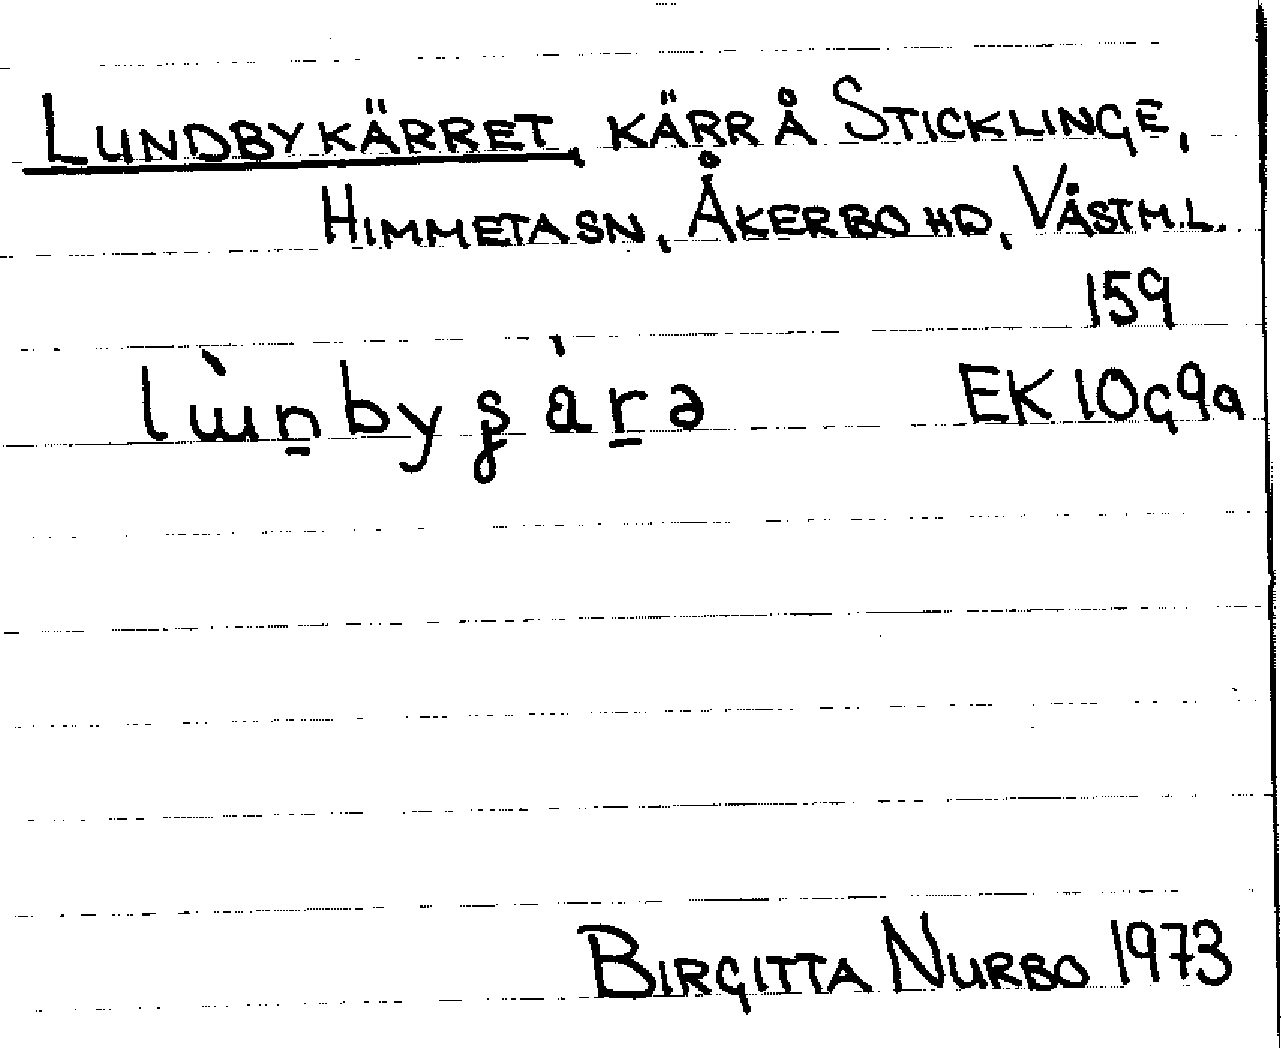 LUNDBYKÄRRET, KÄRR Å STICKLINGE,
HIMMETA SN, ÅKERBO HD, VÄSTM.L.
159
EK 10G9a
BIRGITTA NURBO 1973